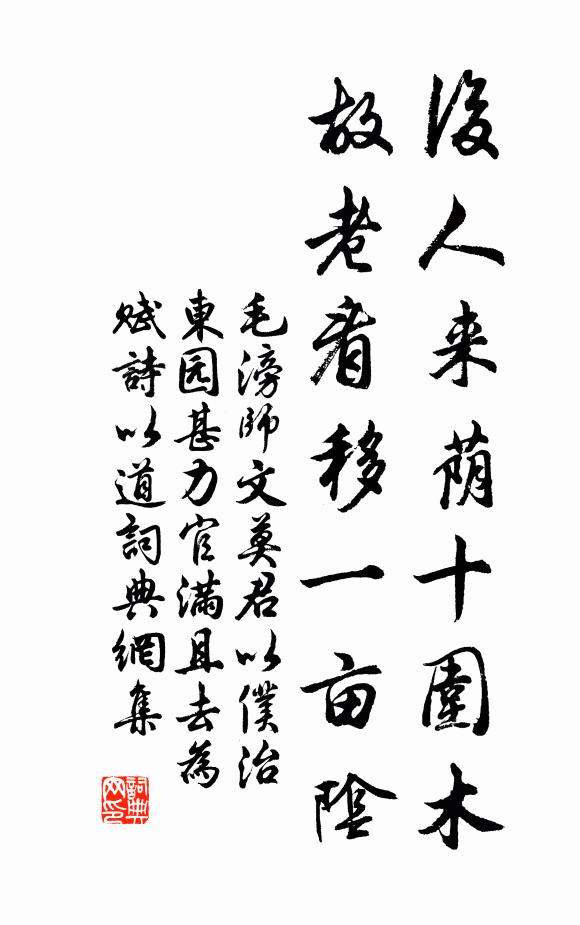 後人来荫十圍木
故老看移一亩陰
毛滂師文莫君以僕治
東园甚力官滿且去為
賦詩以道詞典網集
詞典网印